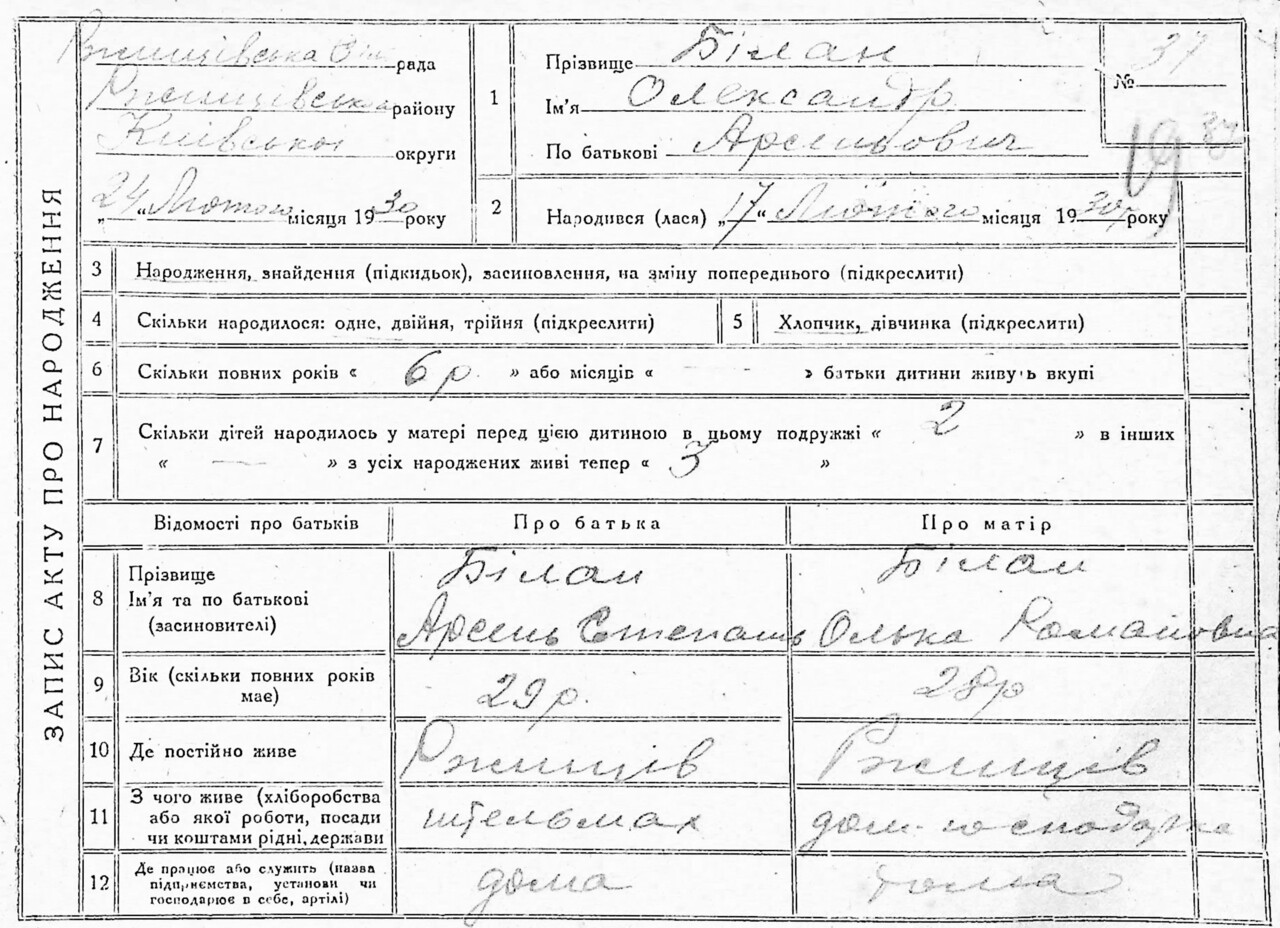 ЗАПИС АКТУ ПРО НАРОДЖЕННЯ
Ржищівська рада
Ржищівська району
Київської округи
„24“ Лютого місяця 1930 року
1
Прізвище Білан
Ім'я Олександр
По батькові Арсеньович
№ 37
19
2
Народився (лася) „17“ Лютого місяця 1930 року
3
Народження, знайдення (підкидьок), засиновлення, на зміну попереднього (підкреслити)
4
Скільки народилося: одне, двійня, трійня (підкреслити)
5
Хлопчик, дівчинка (підкреслити)
6
Скільки повних років « 6 р. » або місяців « — » батьки дитини живуть вкупі
7
Скільки дітей народилось у матері перед цією дитиною в цьому подружжі « 2 » в інших
« — » з усіх народжених живі тепер « 3 »
Відомості про батьків
Про батька
Про матір
8
Прізвище
Ім'я та по батькові
(засиновителі)
Білан
Арсень Степань
Білан
Олька Романовна
9
Вік (скільки повних років
має)
29 р.
28 р
10
Де постійно живе
Ржищів
Ржищів
11
З чого живе (хліборобства
або якої роботи, посади
чи коштами рідні, держави
штельмах
дом. господарка
12
Де працює або служить (назва
підприємства, установи чи
господарює в себе, артілі)
дома
тома